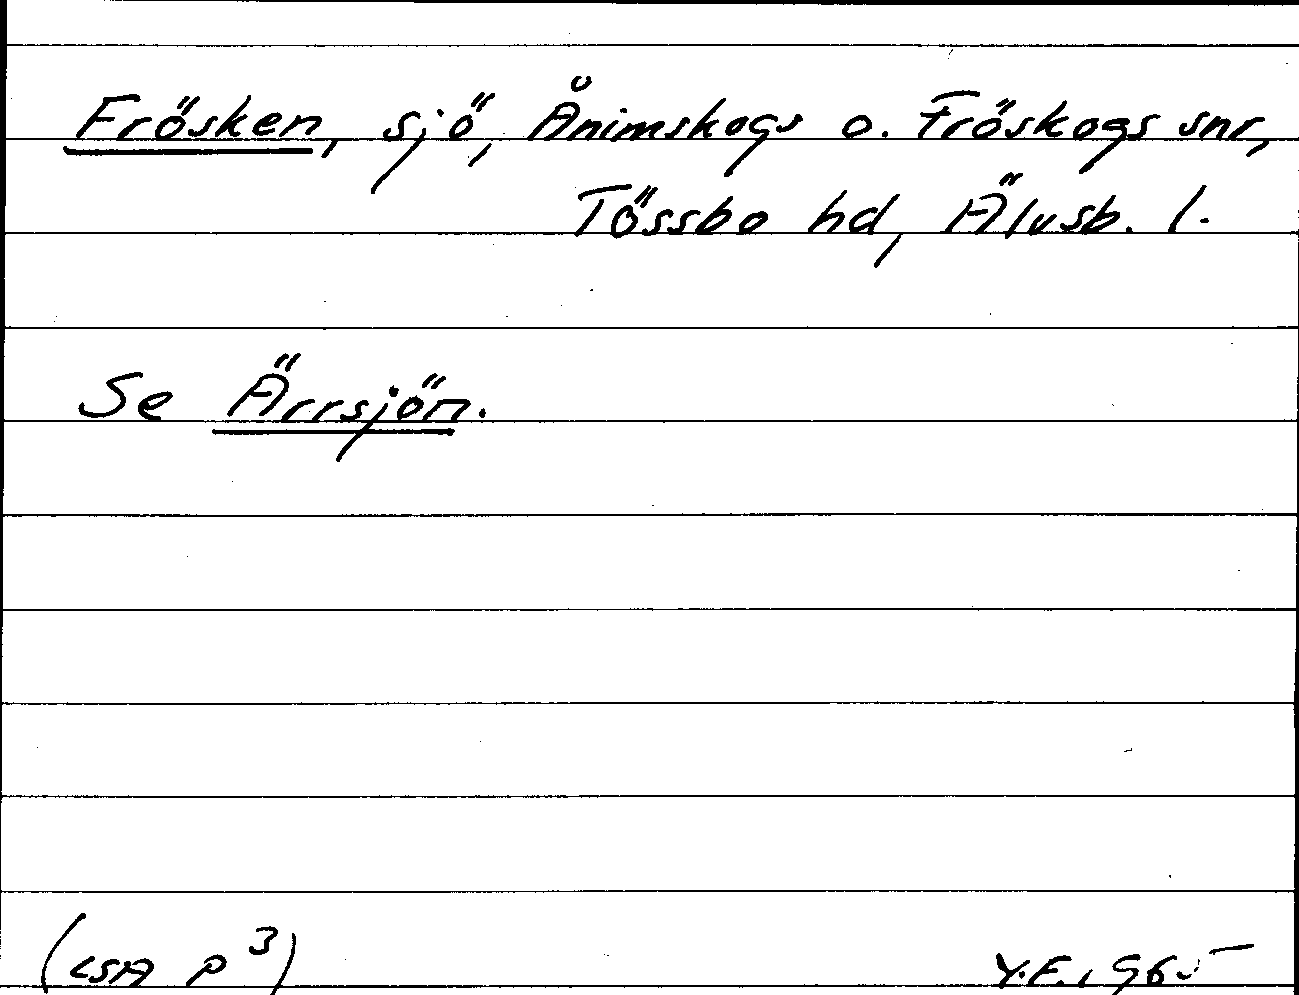 Frösken, sjö, Ånimskogs o. Fröskogs snr,
Tössbo hd, Älvsb. l.
Se Ärrsjön.
(LSA P 3) Y.F. 1965